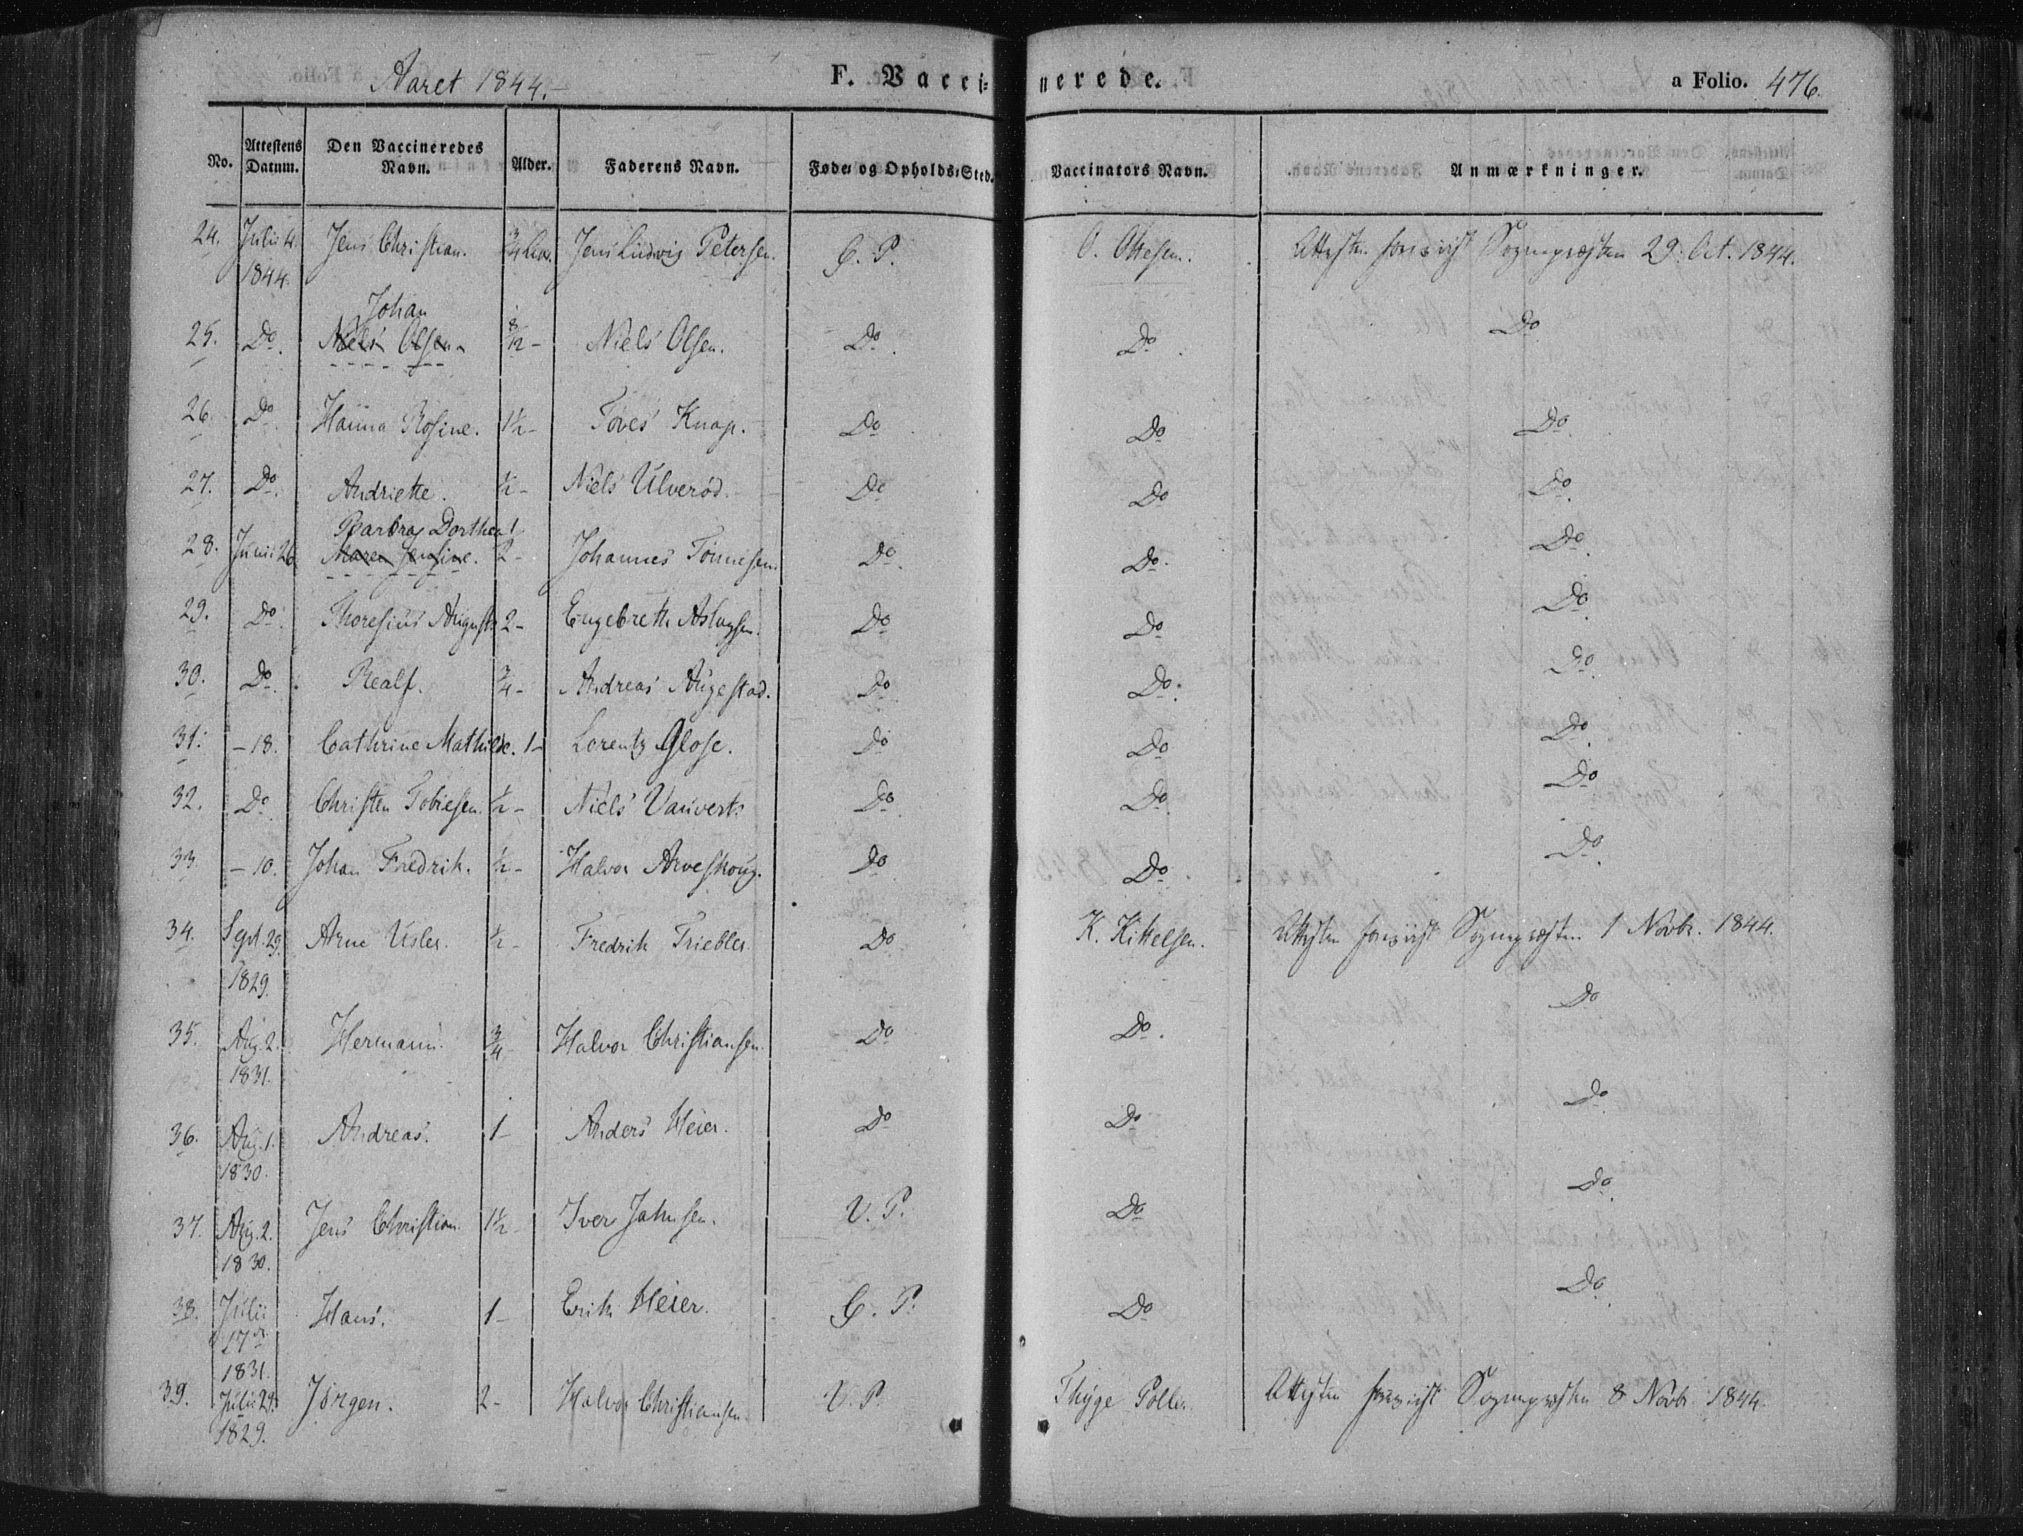 Aaret 1844.
F. Vaccinerede.
a Folio. 476.
No. Attestens Datum. Den Vaccineredes Navn. Alder. Faderens Navn. Føde- og Opholds-Sted. Vaccinators Navn. Anmærkninger.
24. Julii 4. 1844. Jens Christian. 3/4 Jens Ludvig Petersen. C. P. O. Ottesen. Attesten foreviist Sognepræsten 29. Oct. 1844.
Johan
25. Do. Niels Olsen 8/12 - Niels Olsen. Do. Do. Do
26. Do. Hanna Rosine. 1½ - Toves Knap. Do Do Do.
27. Do. Andriette. ½ - Niels Ulverød. Do Do Do.
Barbra Dorthea!
28. Junii 26. Maren Jensine. 2 - Johannes Tønnesen. Do. Do. Do.
29. Do. Thoresius August 2 - Engebreth Aslagsen. Do Do Do.
30. Do. Realf. 3/4 - Andreas Augestad. Do. Do. Do.
31. - 18. Cathrine Mathilde. 1 - Lorentz Glose. Do Do Do.
32. Do. Christen Tobiesen. ½ - Niels Vauvert. Do Do Do
33 - 10. Johan Fredrik. ½ - Halvor Arveskoug. Do Do. Do.
34. Sept. 29. 1829. Arne Usler. ½ - Fredrik Triebler. Do K. Kittelsen. Attesten foreviist Sognepræsten 1 Novbr. 1844.
35. Aug. 2. 1831. Hermann. 3/4 - Halvor Christiansen. Do Do. Do
36. Aug. 1. 1830. Andreas. 1 - Anders Heier. Do Do Do.
37. Aug. 2. 1830. Jens Christian. 1½ - Iver Jahnsen. V. P. Do Do.
38. Julii 17de 1831. Hans. 1 - Erik Heier. C. P. Do Do.
39. Julii 29. 1829. Jørgen. 2 - Halvor Christiansen. V. P. Thyge Poller. Attesten foreviist Sognepræsten 8 Novbr. 1844.